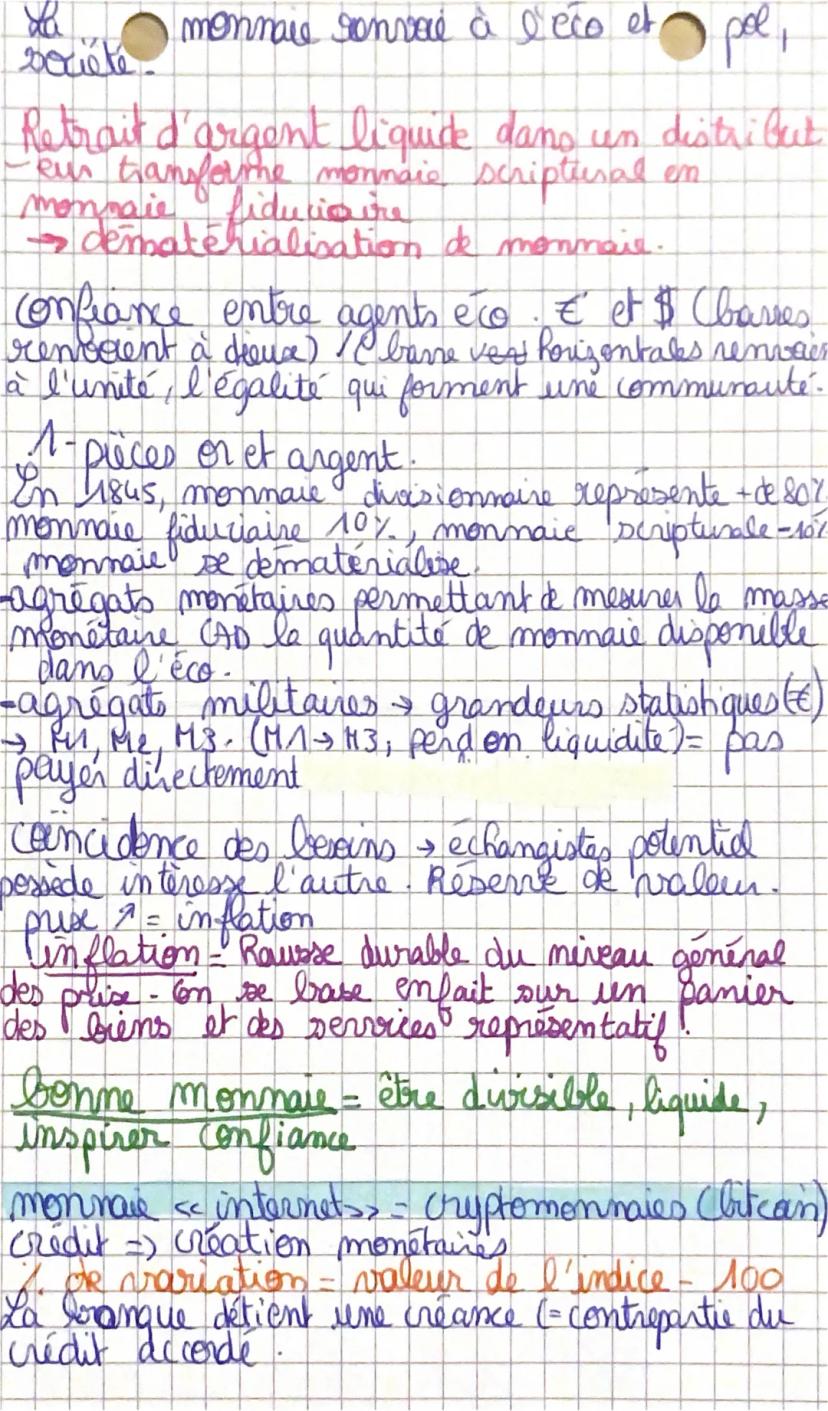 La monnaie renvoie à l'éco et pol,
société.
Retrait d'argent liquide dans un distribut
-eur transforme monnaie scriptural en
monnaie fiduciaire
→ dématérialisation de monnaie.
Confiance entre agents éco. € et $ (barres
renvoient à dieux) / (barre vert horizontales renvoien
à l'unité, l'égalité qui forment une communauté.
1- pièces or et argent.
En 1845, monnaie divisionnaire représente + de 80%
monnaie fiduciaire 10%, monnaie scripturale -10%
monnaie se dématérialise.
-agrégats monétaires permettant de mesurer la masse
monétaire CAD la quantité de monnaie disponible
dans l'éco.
-agrégats militaires → grandeurs statistiques (€)
→ M1, M2, M3. (M1 → M3, perd en liquidité) = pas
payer directement
coïncidence des besoins → échangistes potentiel
possède intéresse l'autre. Réserve de valeur.
prix ↗ = inflation
inflation = Hausse durable du niveau général
des prix - On se base enfait sur un panier
des biens et des services représentatif.
bonne monnaie = être divisible, liquide,
inspirer confiance
monnaie << internet >> = cryptomonnaies (bitcoin)
crédit => création monétaires
% de variation = valeur de l'indice - 100
La banque détient une créance (= contrepartie du
crédit accordé.